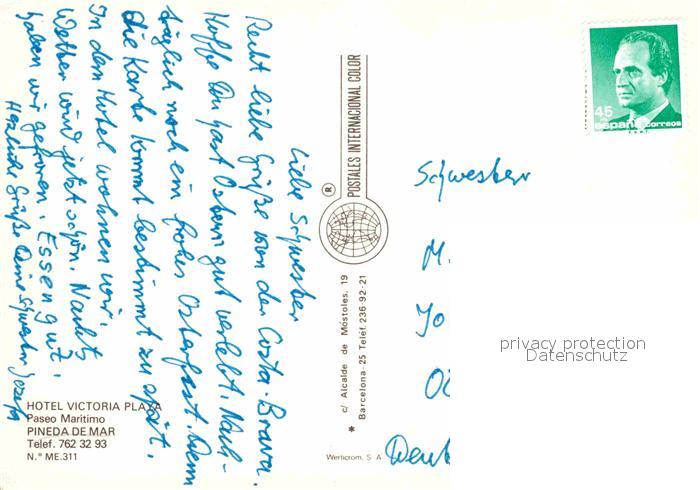 Liebe Schwester
Recht liebe Grüße von der Costa-Brava.
Hoffe Du hast Ostern gut verlebt. Nach-
träglich noch ein frohes Osterfest. Denn
die Karte kommt bestimmt zu spät.
In dem Hotel wohnen wir.
Wetter wird jetzt schön. Nachts
haben wir gefroren. Essen gut.
Herzliche Grüße Deine Schwester
HOTEL VICTORIA PLAYA
Paseo Marítimo
PINEDA DE MAR
Telef. 762 32 93
N.º ME.311
POSTALES INTERNACIONAL COLOR
®
c/ Alcalde de Móstoles, 19
Barcelona-25 Teléf. 236-92-21
*
Werticrom, S A
45
España correos
Schwester
M.
Jo
Deut
privacy protection
Datenschutz